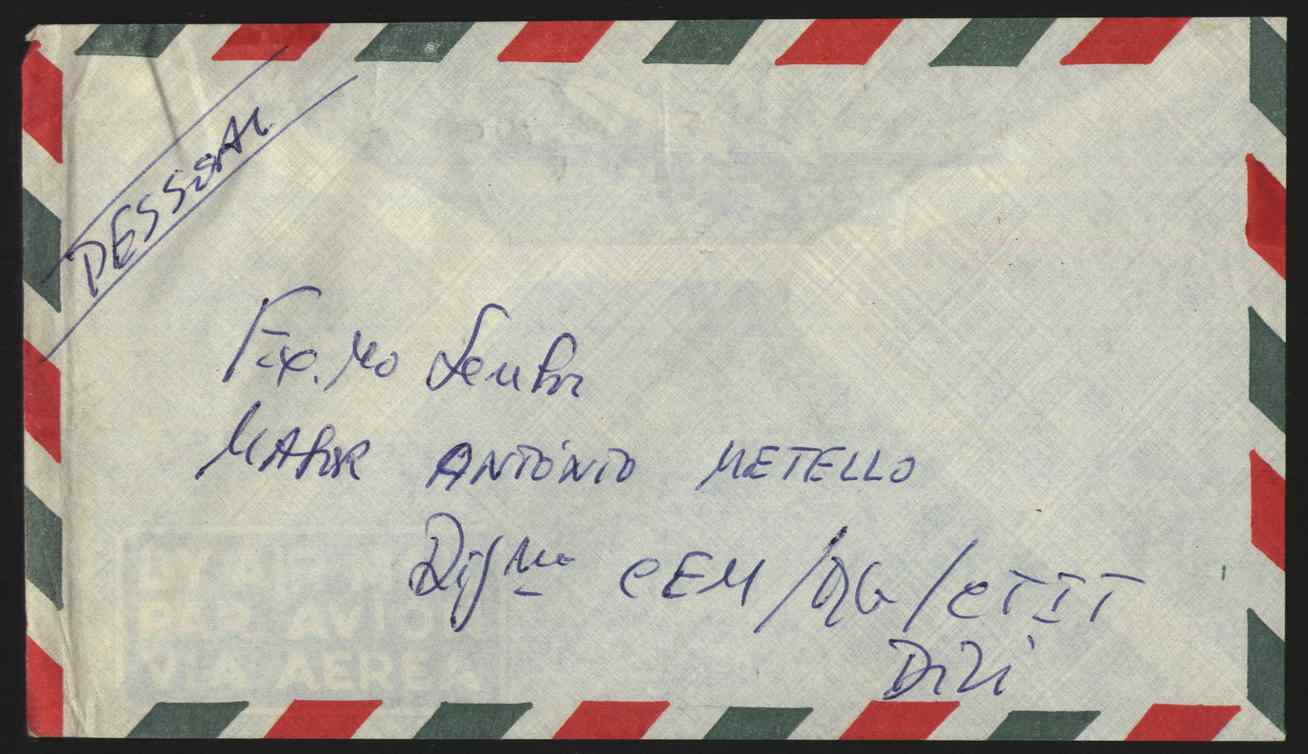 PESSOAL
Exc.mo Senhor
MAJOR ANTÓNIO METELLO
Digmo CEM/QG/CTIT
Dili
BY AIR M
PAR AVION
VIA AEREA